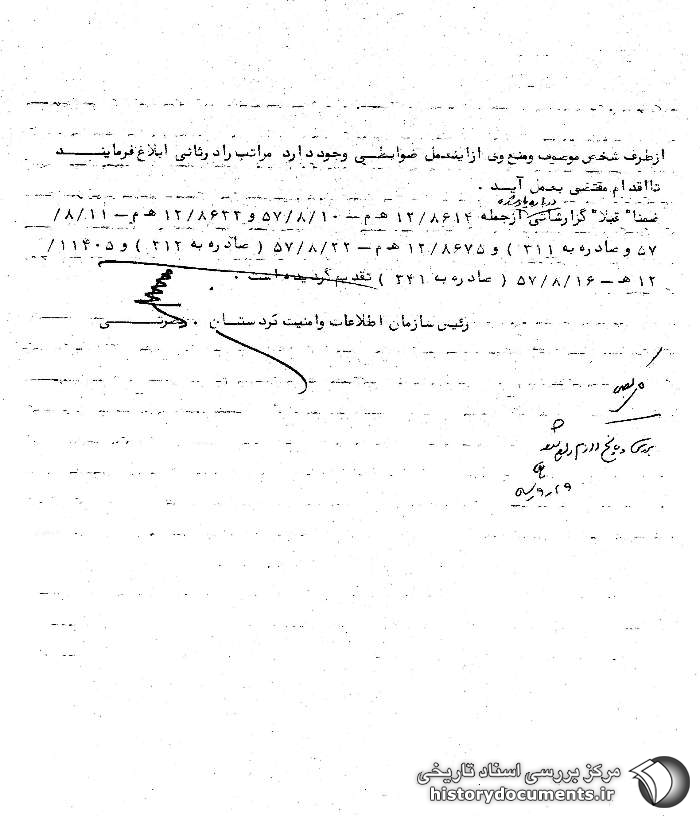 ازطرف شخص موصوف ومنع وی ازاینعمل ضوابطی وجود دارد مراتب را درثانی ابلاغ فرمایند
تا اقدام مقتضی بعمل آید .
درباره یادشده
ضمنا" قبلا" گزارشاتی ازجمله ۱۲/۸۶۱۴ هـ م – ۵۷/۸/۱۰ و ۱۲/۸۶۲۲ هـ م – ۸/۱۱/
۵۷ و صادره به ۳۱۱ ) و ۱۲/۸۶۷۵ هـ م – ۵۷/۸/۲۲ ( صادره به ۳۱۲ ) و ۱۱۴۰۵/
۱۲ هـ – ۵۷/۸/۱۶ ( صادره به ۳۴۱ ) تقدیم گردیده است .
رئیس سازمان اطلاعات وامنیت کردستان .
بررسی و پاسخ لازم
مرکز بررسی اسناد تاریخی
historydocuments.ir